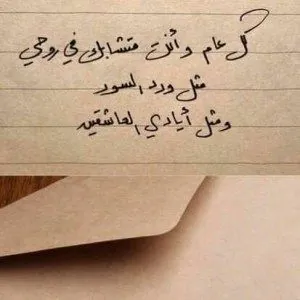 كل عام وأنت متشابك في روحي
مثل ورد السور
ومثل أيادي العاشقين